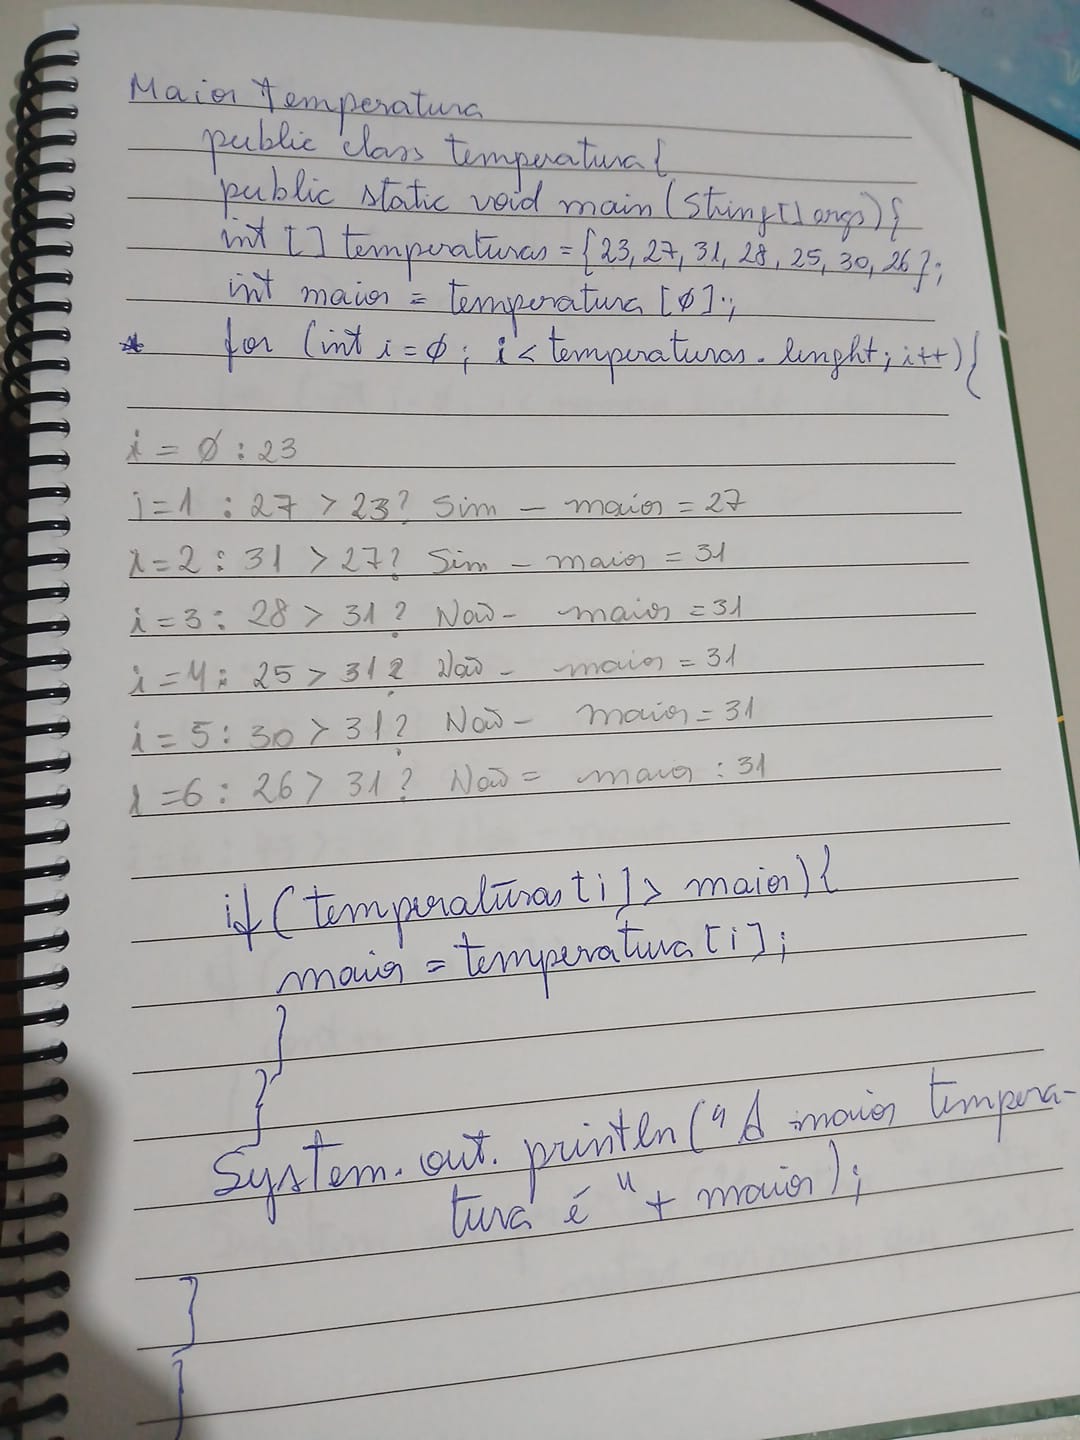 Maior temperatura
public class temperatura{
public static void main(String[] args){
int [] temperaturas = {23, 27, 31, 28, 25, 30, 26};
int maior = temperatura [0];
* for (int i=0; i< temperaturas.lenght; i++){
i = 0 : 23
i=1 : 27 > 23? Sim - maior = 27
i=2 : 31 > 27? Sim - maior = 31
i=3 : 28 > 31? Não - maior = 31
i=4 : 25 > 31? Não - maior = 31
i=5 : 30 > 31? Não - maior = 31
i=6 : 26 > 31? Não = maior : 31
if (temperaturas[i] > maior){
maior = temperatura[i];
}
}
System.out.println("A maior tempera-
tura é " + maior);
}
}